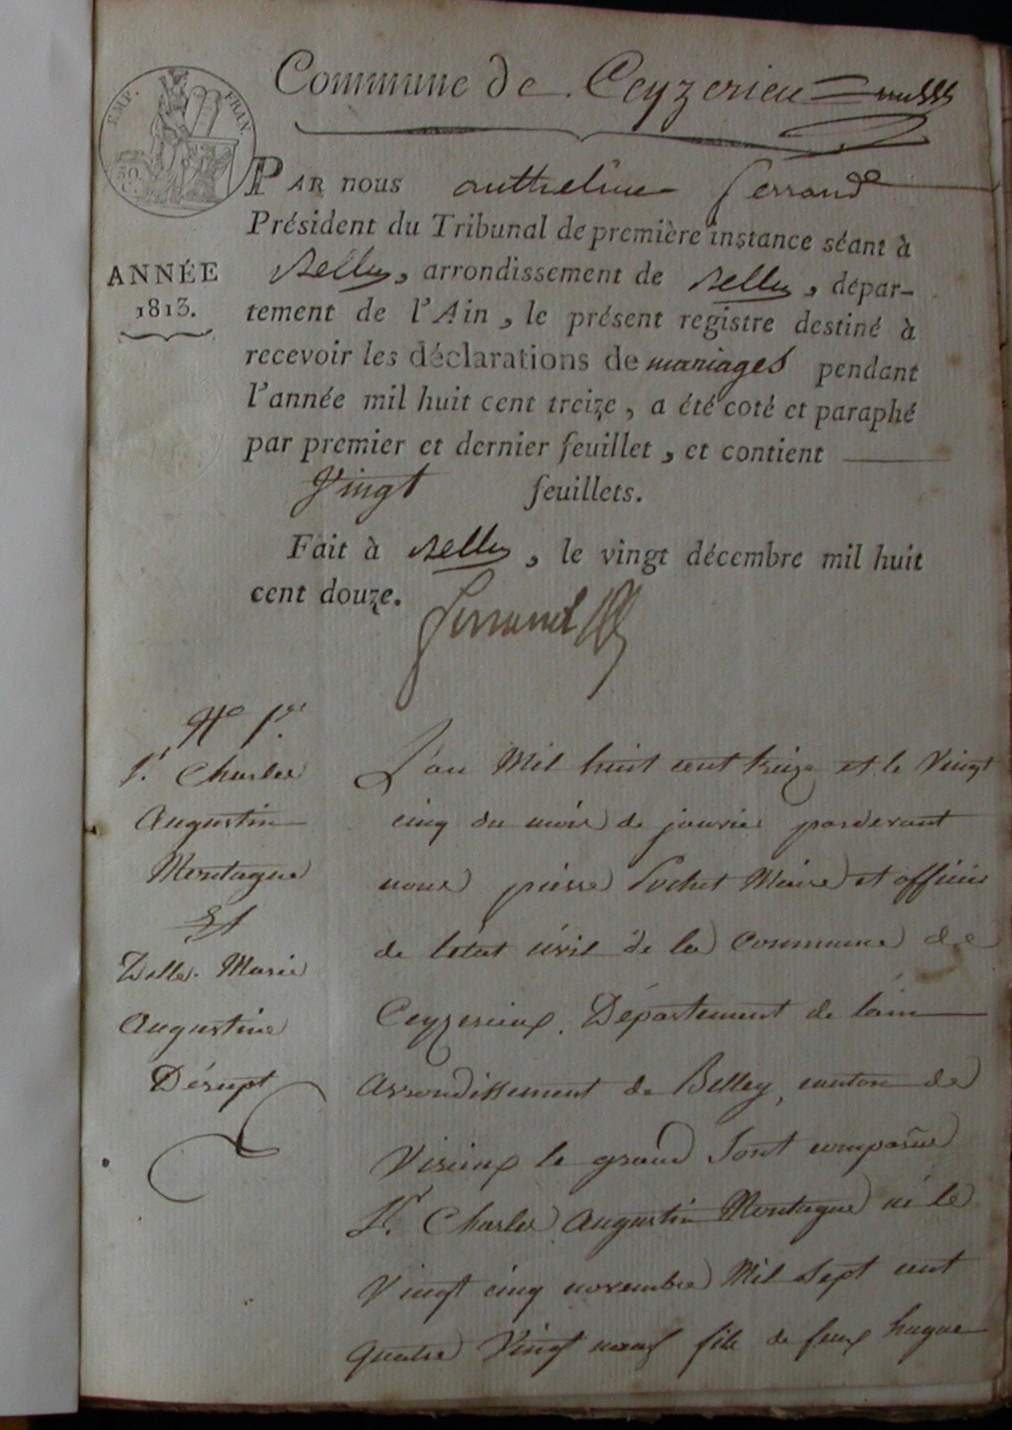 Commune de Ceyzerieu
EMP. FRAN.
30 C.
PAR nous anthelme ferrand
Président du Tribunal de première instance séant à
ANNÉE
1813.
Belley, arrondissement de Belley, dépar-
tement de l'Ain, le présent registre destiné à
recevoir les déclarations de mariages pendant
l'année mil huit cent treize, a été coté et paraphé
par premier et dernier feuillet, et contient
Vingt feuillets.
Fait à Belley, le vingt décembre mil huit
cent douze.
ferrand
No 1er
Sr. Charles
Augustin
Montagne
Et
Delle. Marie
Augustine
Dérupt
L'an Mil huit cent treize et le Vingt
cinq du mois de janvier pardevant
nous pierre Sochet Maire et officier
de létat civil de la Commune de
Ceyzerieux. Département de lain
Arrondissement de Belley, canton de
Virieux le grand Sont comparus
Sr. Charles Augustin Montagne né le
Vingt cinq novembre Mil Sept cent
quatre Vingt neuf fils de feux hugue